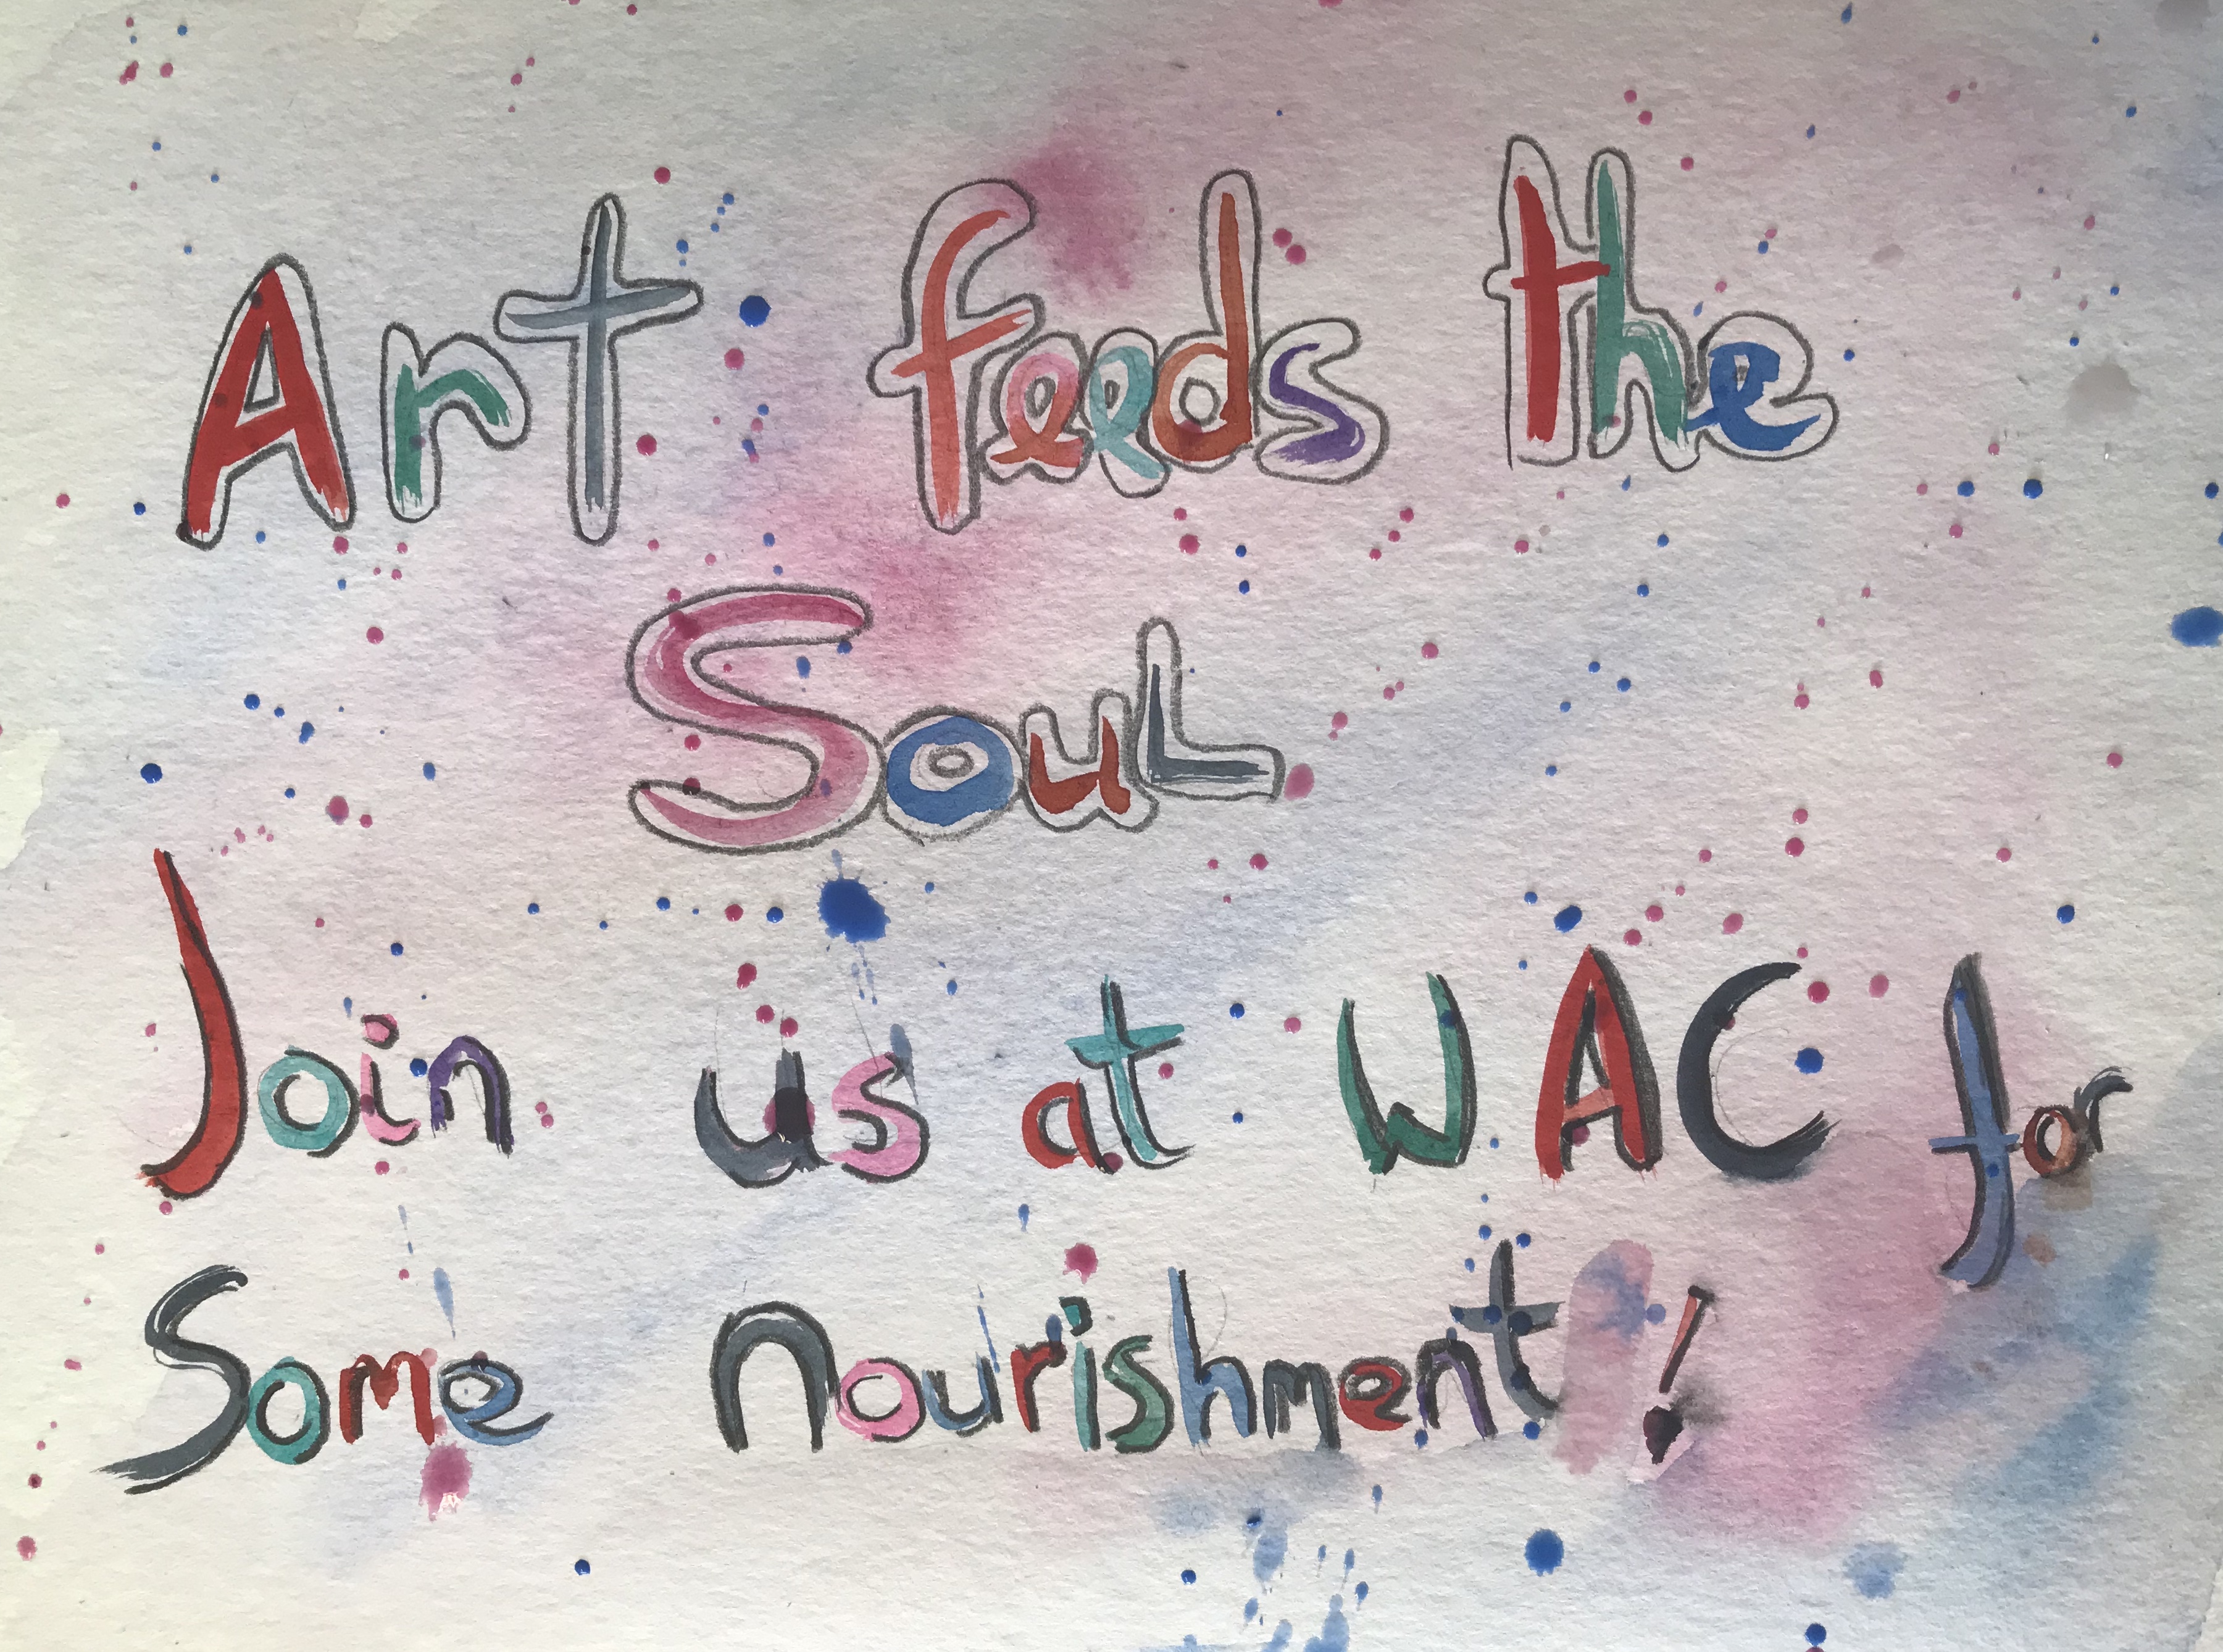 Art feeds the
Soul
Join us at WAC for
Some nourishment!